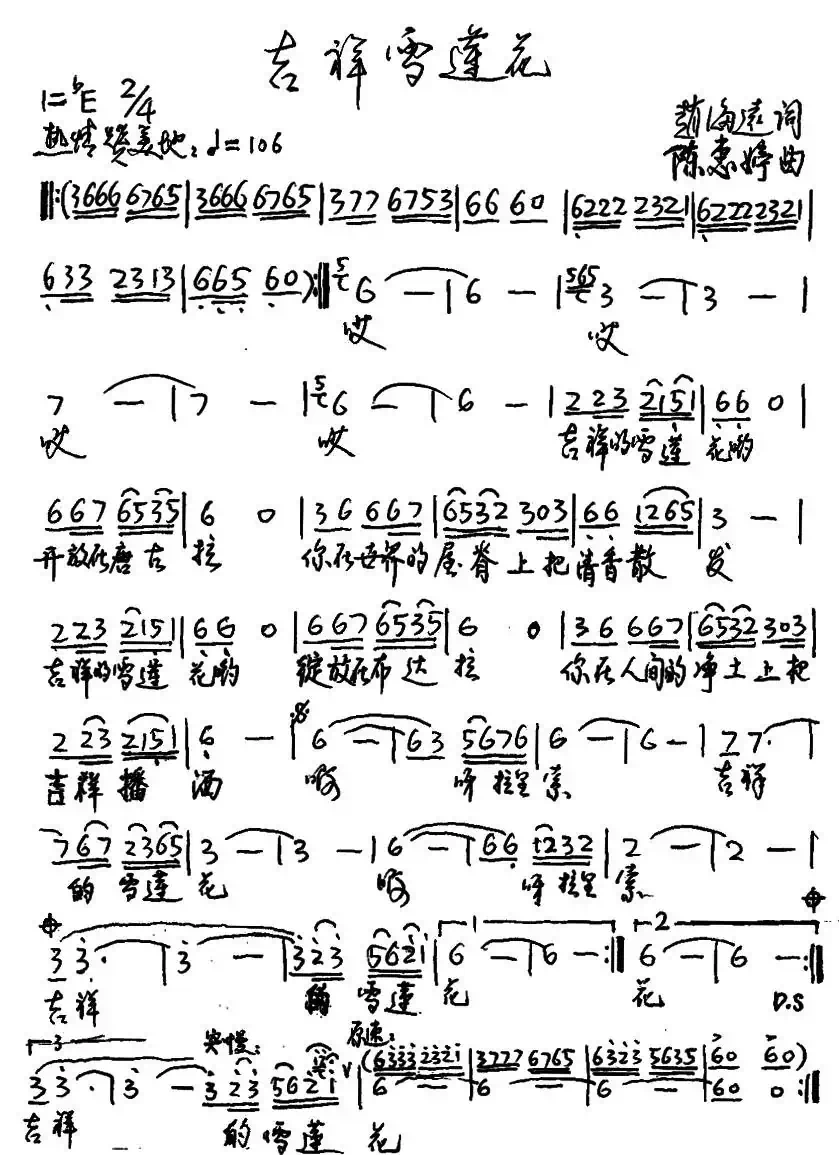 吉祥雪莲花
1=♭E 2/4
热情赞美地：♩=106
赵海远词
陈惠婷曲
‖:(3666 6765|3666 6765|377 6753|66 60|6222 2321|6222 2321|
633 2313|665 60):‖ 5 6 —|6 —|565 3 —|3 —|
哎 哎
7 —|7 —|5 6 —|6 —|223 2151|66 0|
哎 哎 吉祥的雪莲 花哟
667 6535|6 0|36 667|6532 303|66 1265|3 —|
开放在唐古 拉 你在世界的屋脊上把清香散 发
223 2151|66 0|667 6535|6 0|36 667|6532 303|
吉祥的雪莲 花哟 绽放在布达 拉 你在人间的净土上把
223 2151|6 —|𝄋 6 —|63 5676|6 —|6 —|77·|
吉祥播 洒 啊 呀拉呈索 吉祥
767 2365|3 —|3 —|6 —|66 1232|2 —|2 —|
的雪莲 花 啊 呀拉呈 索
33·|3 —|323 5621|1 6 —|6 —:‖2 6 —|6 —:‖
吉祥 的 雪莲 花 花 D.S
3 突慢： 原速：
33·|3 —|323 5621 V|(6333 2321|3722 6765|6323 5635|60 60)
6 —|6 —|6 —|60 0:‖
吉祥 的雪莲 花